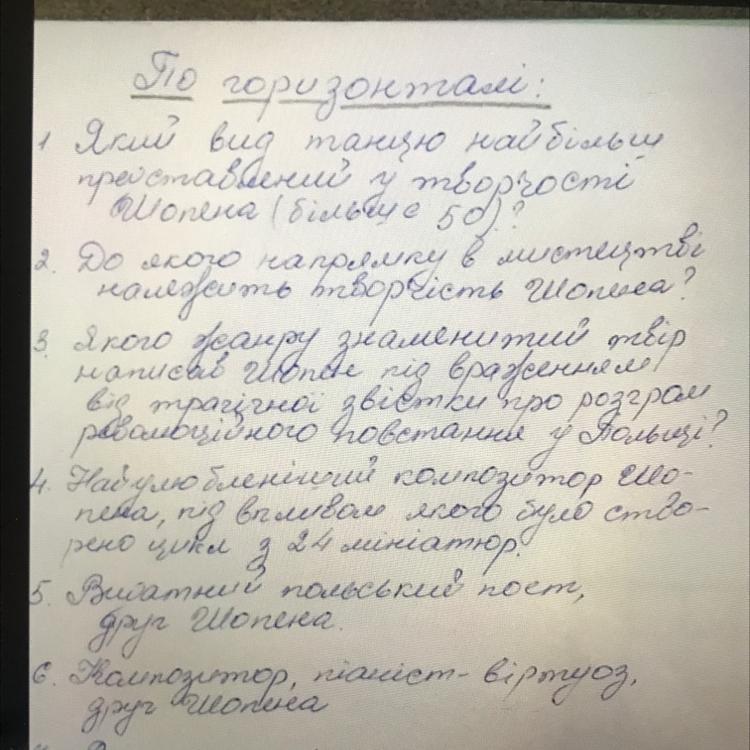 По горизонталі:
1 Який вид танцю найбільш
представлений у творчості
Шопена (більше 50)?
2. До якого напрямку в мистецтві
належить творчість Шопена?
3. Якого жанру знаменитий твір
написав Шопен під враженням
від трагічної звістки про розгром
революційного повстання у Польщі?
4. Найулюбленіший композитор Шо-
пена, під впливом якого було ство-
рено цикл з 24 мініатюр.
5. Видатний польський поет,
друг Шопена.
6. Композитор, піаніст-віртуоз,
друг Шопена